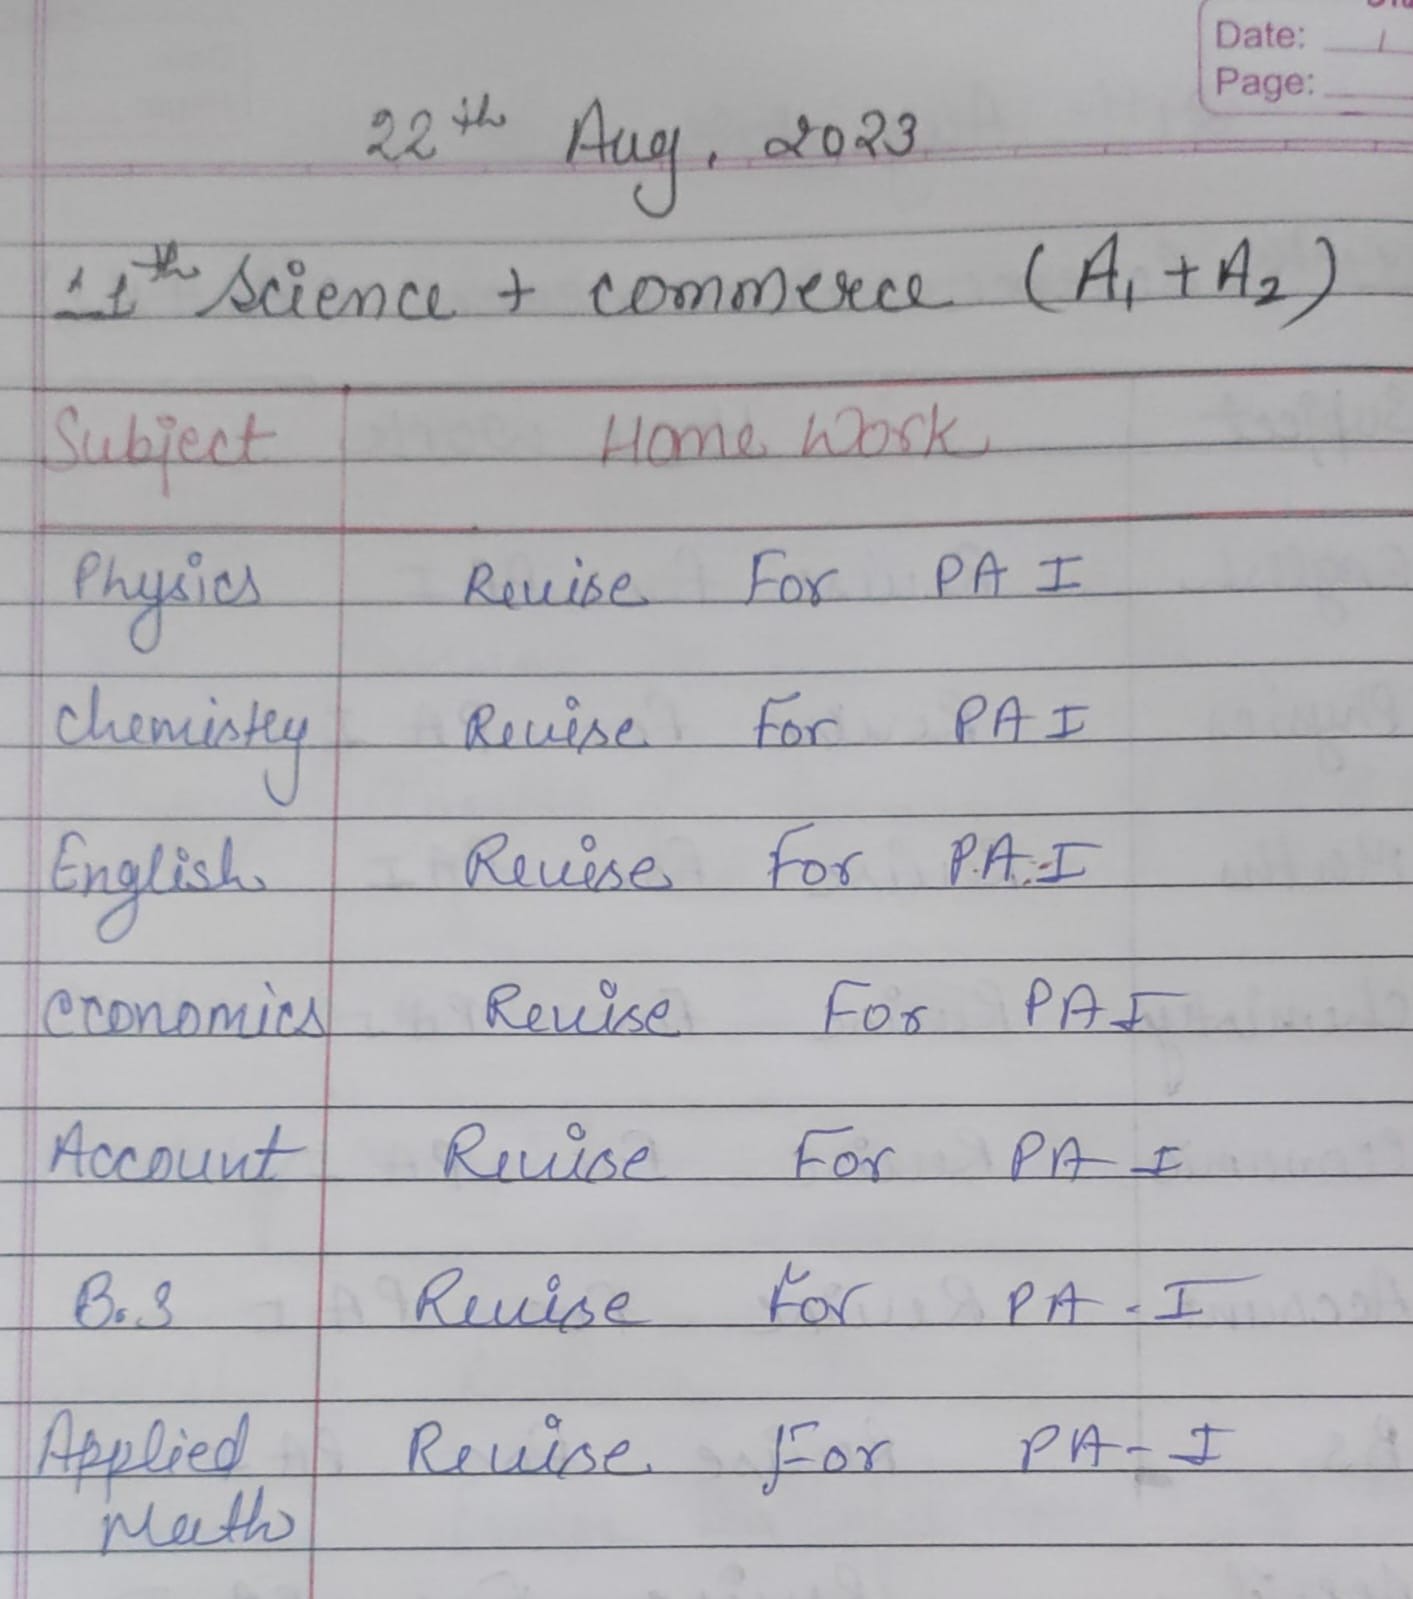 Date:
Page:
22th Aug, 2023
11th Science + commerce (A1 + A2)
Subject Home Work
Physics Revise For PA I
Chemistry Revise For PA I
English Revise For P.A.-I
economics Revise For PA I
Account Revise For PA I
B.S Revise For PA - I
Applied Revise For PA - I
Math